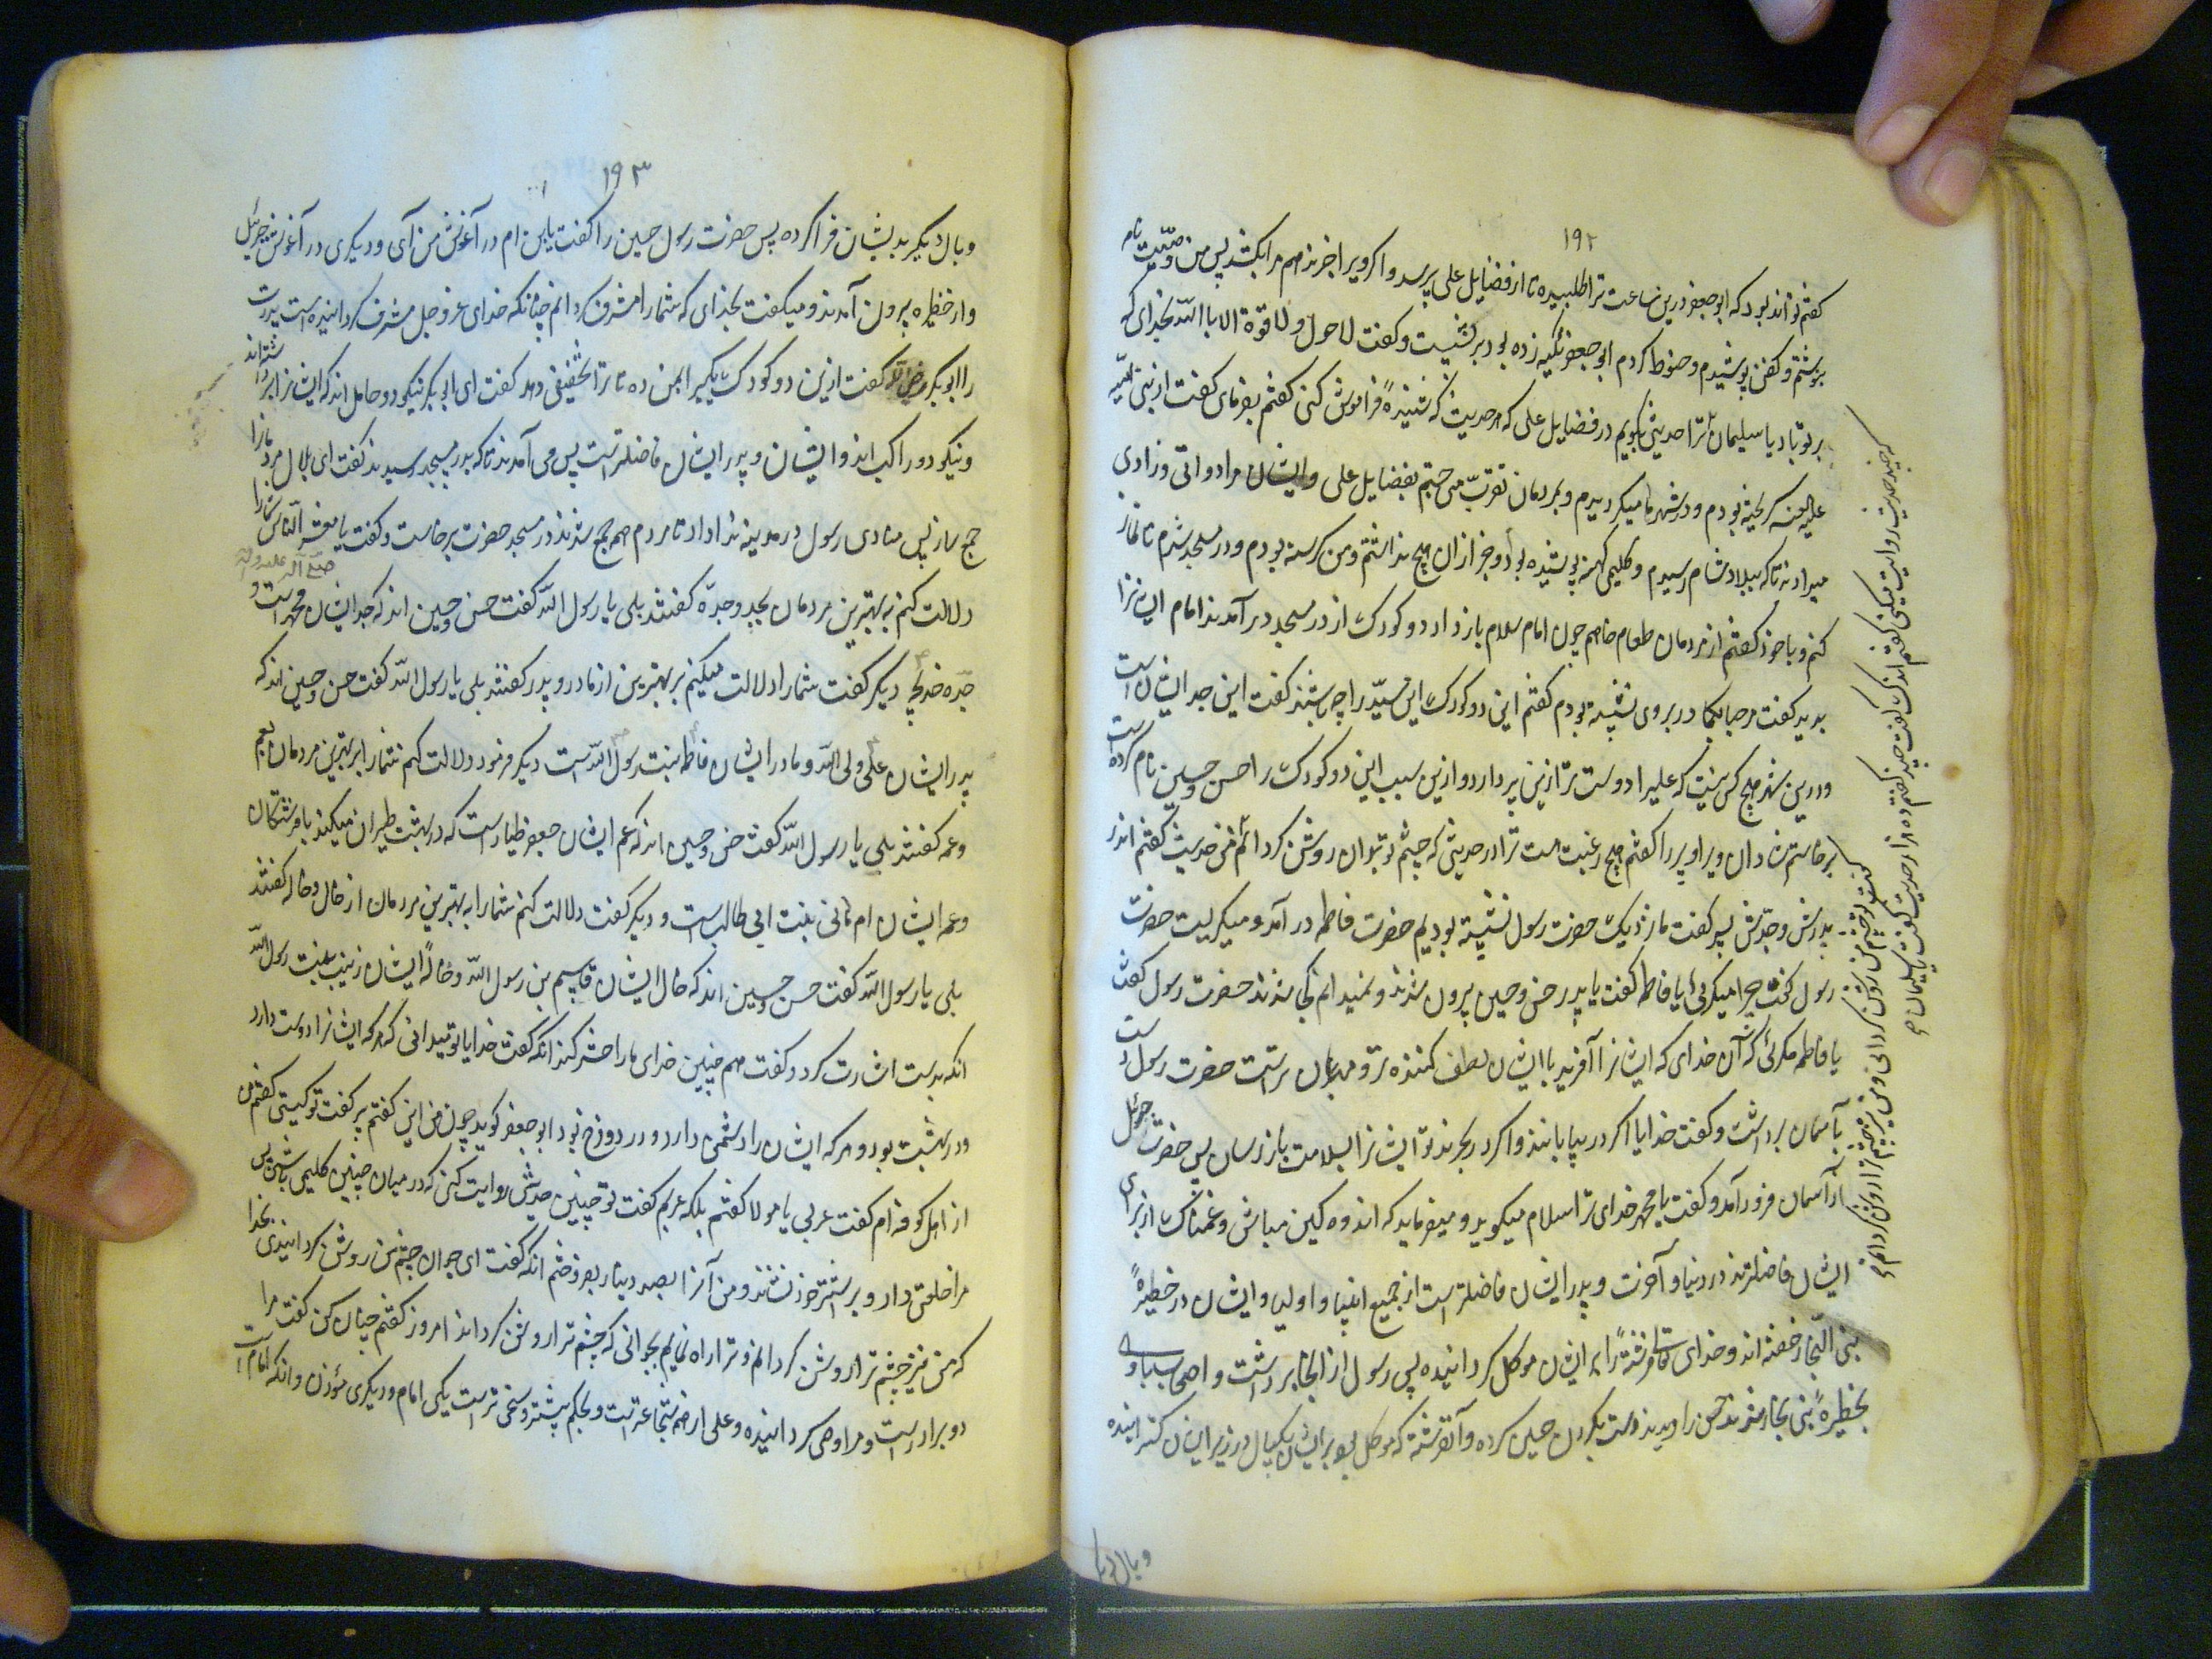 ۱۹۲
گفتم تواند بود که ابو جعفر درین ساعت ترا طلبیده تا از فضایل علی پرسد و اگر ویرا خبر ندهم مرا بکشد پس من وصیت نامه
بنوشتم و کفن پوشیدم و حنوط کردم ابو جعفر تکیه زده بود برنشست و گفت لا حول و لا قوة الا بالله بخدای که
بر تو باد یا سلیمان ترا حدیثی بگویم در فضایل علی که هر حدیث که شنیدهٔ فراموش کنی گفتم بفرمای گفت از بنی امیه
علیه اللعنه گریخته بودم و در شهرها میگردیدم و بمردمان تقرب می جستم بفضایل علی و ایشان مرا دواتی و زادی
میدادند تا که ببلاد شام رسیدم و کلیمی کهنه پوشیده بودم و جز از آن هیچ نداشتم و من گرسنه بودم و در مسجد شدم تا نماز
کنم و با خود گفتم از مردمان طعام خواهم چون امام سلام باز داد دو کودک از در مسجد در آمدند امام ایشانرا
بدید گفت مرحبا بکما در بروی نشسته بودم گفتم این دو کودک این سید را چه باشند گفت این جد ایشان است
و درین شهر هیچ کس نیست که علیرا دوست تر ازین پیر دارد و ازین سبب این دو کودک را حسن و حسین نام کرده است
برخاستم شادان و پیرا و پیر را گفتم هیچ رغبت هست ترا در حدیثی که چشم تو بتوان روشن کرد انم من حدیث گفتم از
پدرش و جدش پسر گفت ما نزدیک حضرت رسول نشسته بودیم حضرت فاطمه در آمد و میگریست حضرت
رسول گفت چرا میگریی یا فاطمه گفت یا پدر حسن و حسین بیرون شدند و نمیدانم کجا شدند حضرت رسول گفت
یا فاطمه مگری که آن خدای که ایشانرا آفرید با ایشان لطف کننده تر و مهربان تر است حضرت رسول دست
بآسمان برداشت و گفت خدایا اگر در بیابانند و اگر در بحرند تو ایشانرا بسلامت باز رسان پس حضرت جبرئیل
از آسمان فرود آمد و گفت یا محمد خدای ترا سلام میگوید و میفرماید که اندوهگین مباش و غمناک از برای
ایشان فاضلترند در دنیا و آخرت و پدر ایشان فاضلتر است از جمیع انبیا و اولیا و ایشان در حظیرهٔ
بنی النجار خفته اند و خدای تعالی فرشتهٔ را بر ایشان موکل گردانیده پس رسول از آنجا برداشت و اصحاب با وی
بحظیرهٔ بنی نجار شدند حسن را دیدند دست بگردن حسین کرده و آن فرشته که موکل بود بر ایشان یکبال در زیر ایشان گسترانیده
و بال دیگر
که چند حدیث روایت میکنی گفتم اندک گفت چند گفتم ده هزار حدیث گفت یا سلیمان
گفت تو چشم من روشن گردانی و من نیز چشم ترا روشن گردانم
۱۹۳
و بال دیگر بدیشان فرا کرده پس حضرت رسول حسین را گفت یابن ام در آغوش من آی و دیگری در آغوش جبرئیل
و از حظیره بیرون آمدند و میگفت بخدای که شما را مشرف گردانم چنانکه خدای عز و جل مشرف گردانیده است پدرت
را ابو بکر گفت ازین دو کودک یکی را بمن ده تا ترا تخفیفی دهد گفت ای ابو بکر نیکو دو حامل اند که ایشانرا برداشته اند
و نیکو دو راکب اند و ایشان و پدر ایشان فاضلتر است پس می آمدند تا که بدر مسجد رسیدند گفت ای بلال مردمانرا
جمع ساز پس منادی رسول در مدینه ندا داد تا مردم همه جمع شدند در مسجد حضرت برخاست و گفت یا معشر الناس شما را
صلی الله علیه و آله
دلالت کنم به بهترین مردمان بجد و جده گفتند بلی یا رسول الله گفت حسن و حسین اند که جد ایشان محمد است و
جده خدیجه دیگر گفت شما را دلالت میکنم بر بهترین از مادر و پدر گفتند بلی یا رسول الله گفت حسن و حسین اند که
پدر ایشان علی ولی الله و مادر ایشان فاطمه بنت رسول الله است دیگر فرمود دلالت کنم شما را بر بهترین مردمان بعم
و عمه گفتند بلی یا رسول الله گفت حسن و حسین اند که عم ایشان جعفر طیار است که در بهشت طیران میکند با فرشتگان
و عمه ایشان ام هانی بنت ابی طالب است و دیگر گفت دلالت کنم شما را به بهترین مردمان از خال و خاله گفتند
بلی یا رسول الله گفت حسن و حسین اند که خال ایشان قاسم بن رسول الله و خالهٔ ایشان زینب بنت رسول الله
آنکه بدست اشارت کرد و گفت همچنین خدای ما را حشر کند آنکه گفت خدایا تو میدانی که هر که ایشانرا دوست دارد
در بهشت بود و هر که ایشان را دشمن دارد در دوزخ بود ابو جعفر گوید چون من این گفتم پیر گفت تو کیستی گفتم من
از اهل کوفه ام گفت عربی یا مولا گفتم بلکه عربم گفت تو چنین حدیثی روایت کنی که در میان چنین کلیمی باشی پس
مرا خلعتی داد و بر استر خود نشاند و من آنرا بصد دینار بفروختم آنکه گفت ای جوان چشم من روشن گردانیدی بخدا
که من نیز چشم ترا روشن گردانم و ترا راه نمایم بجوانی که چشم ترا روشن گرداند امروز گفتم چنان کن گفت مرا
دو برادر است و مرا وصی گردانیده و علی از همه شجاعتر است و بحکم بیشتر و سخی تر است یکی امام و دیگری مؤذن و آنکه امام است